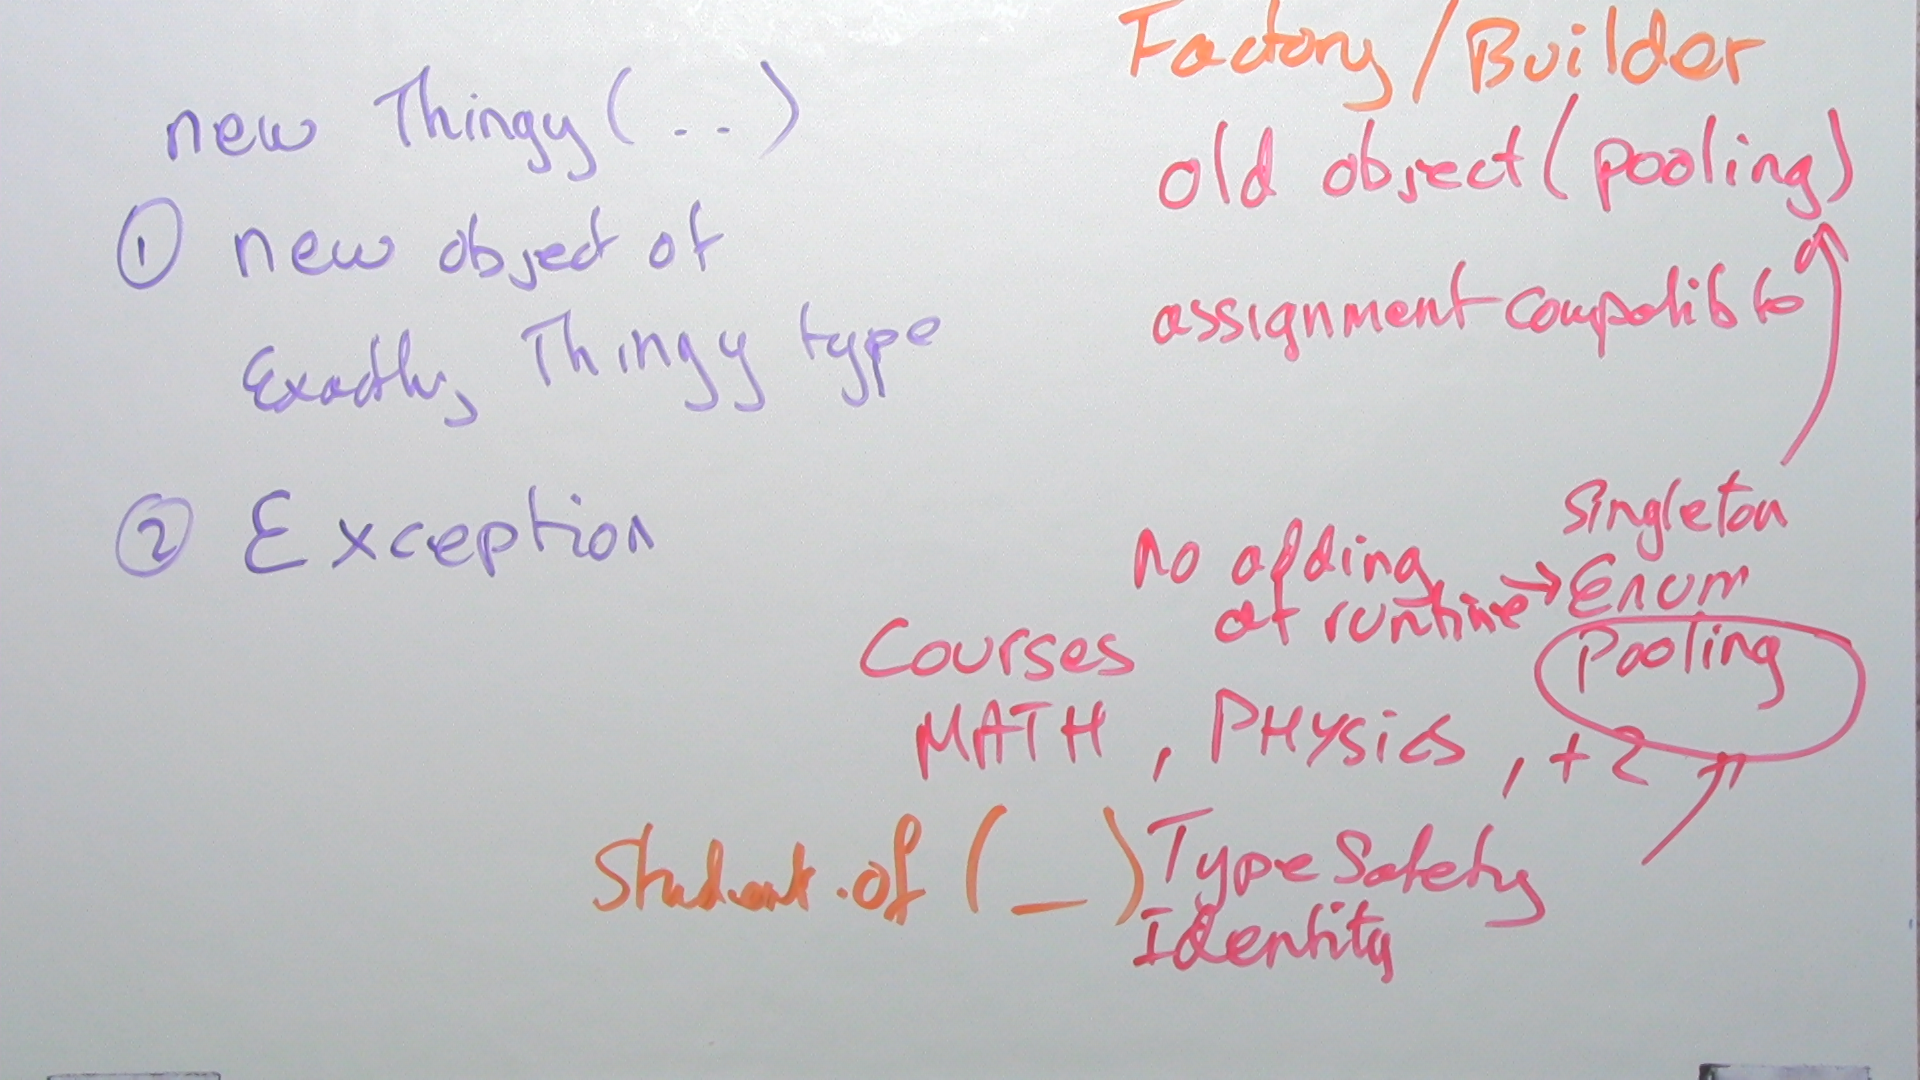 new Thingy(..)
① new object of
Exactly Thingy type
② Exception
Factory/Builder
old object (pooling)
assignment compatible
Singleton
no adding
at runtime → Enum
Pooling
Courses
MATH, PHYSICS, +2
Student.of(_)
Type Safety
Identity